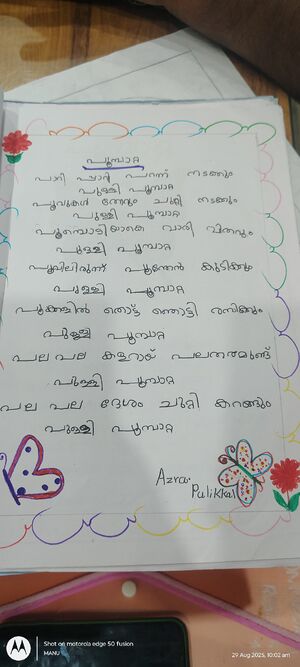 പൂമ്പാറ്റ
പാറി പ്പാറി പറന്ന് നടക്കും
പുള്ളി പൂമ്പാറ്റ
പൂവുകൾ തോറും ചുറ്റി നടക്കും
പുള്ളി പൂമ്പാറ്റ
പൂമ്പൊടിയാകെ വാരി വിതറും
പുള്ളി പൂമ്പാറ്റ
പൂവിലിരുന്ന് പൂന്തേൻ കുടിക്കും
പുള്ളി പൂമ്പാറ്റ
പൂക്കളിൽ തൊട്ട് തൊട്ടി രസിക്കും
പുള്ളി പൂമ്പാറ്റ
പല പല കളറായ് പലതരമുണ്ട്
പുള്ളി പൂമ്പാറ്റ
പല പല ദേശം ചുറ്റി കറങ്ങും
പുള്ളി പൂമ്പാറ്റ
Azra.
Pulikkal
Shot on motorola edge 50 fusion
MANU
29 Aug 2025, 10:02 am